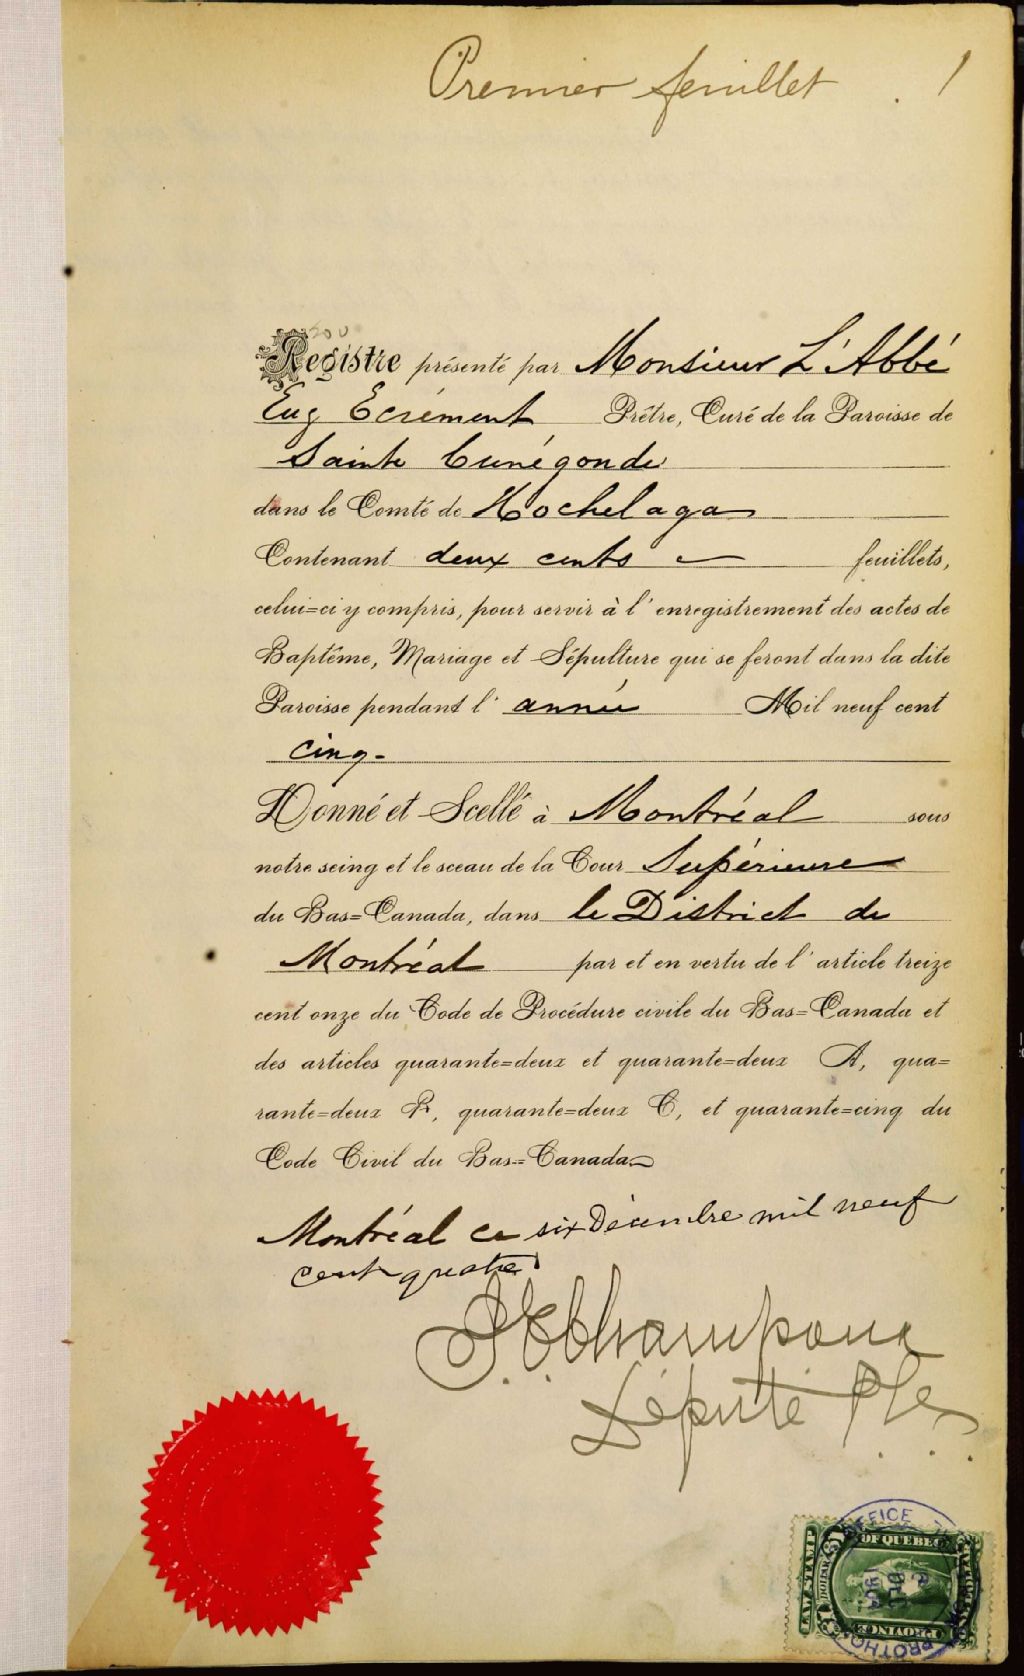 Premier feuillet 1
200
Registre présenté par Monsieur L'Abbé
Eug Ecrément Prêtre, Curé de la Paroisse de
Sainte Cunégonde
dans le Comté de Hochelaga
Contenant deux cents feuillets,
celui=ci y compris, pour servir à l'enregistrement des actes de
Baptême, Mariage et Sépulture qui se feront dans la dite
Paroisse pendant l'année Mil neuf cent
cinq-
Donné et Scellé à Montréal sous
notre seing et le sceau de la Cour Supérieure
du Bas=Canada, dans le District de
Montréal par et en vertu de l'article treize
cent onze du Code de Procédure civile du Bas=Canada et
des articles quarante=deux et quarante=deux A, qua=
rante=deux B, quarante=deux C, et quarante=cinq du
Code Civil du Bas=Canada
Montréal ce six Décembre mil neuf
cent quatre
Député
OFFICE
LAW STAMP
OF QUEBEC
DOLLAR
DEC
PROVINCE
PROTHO